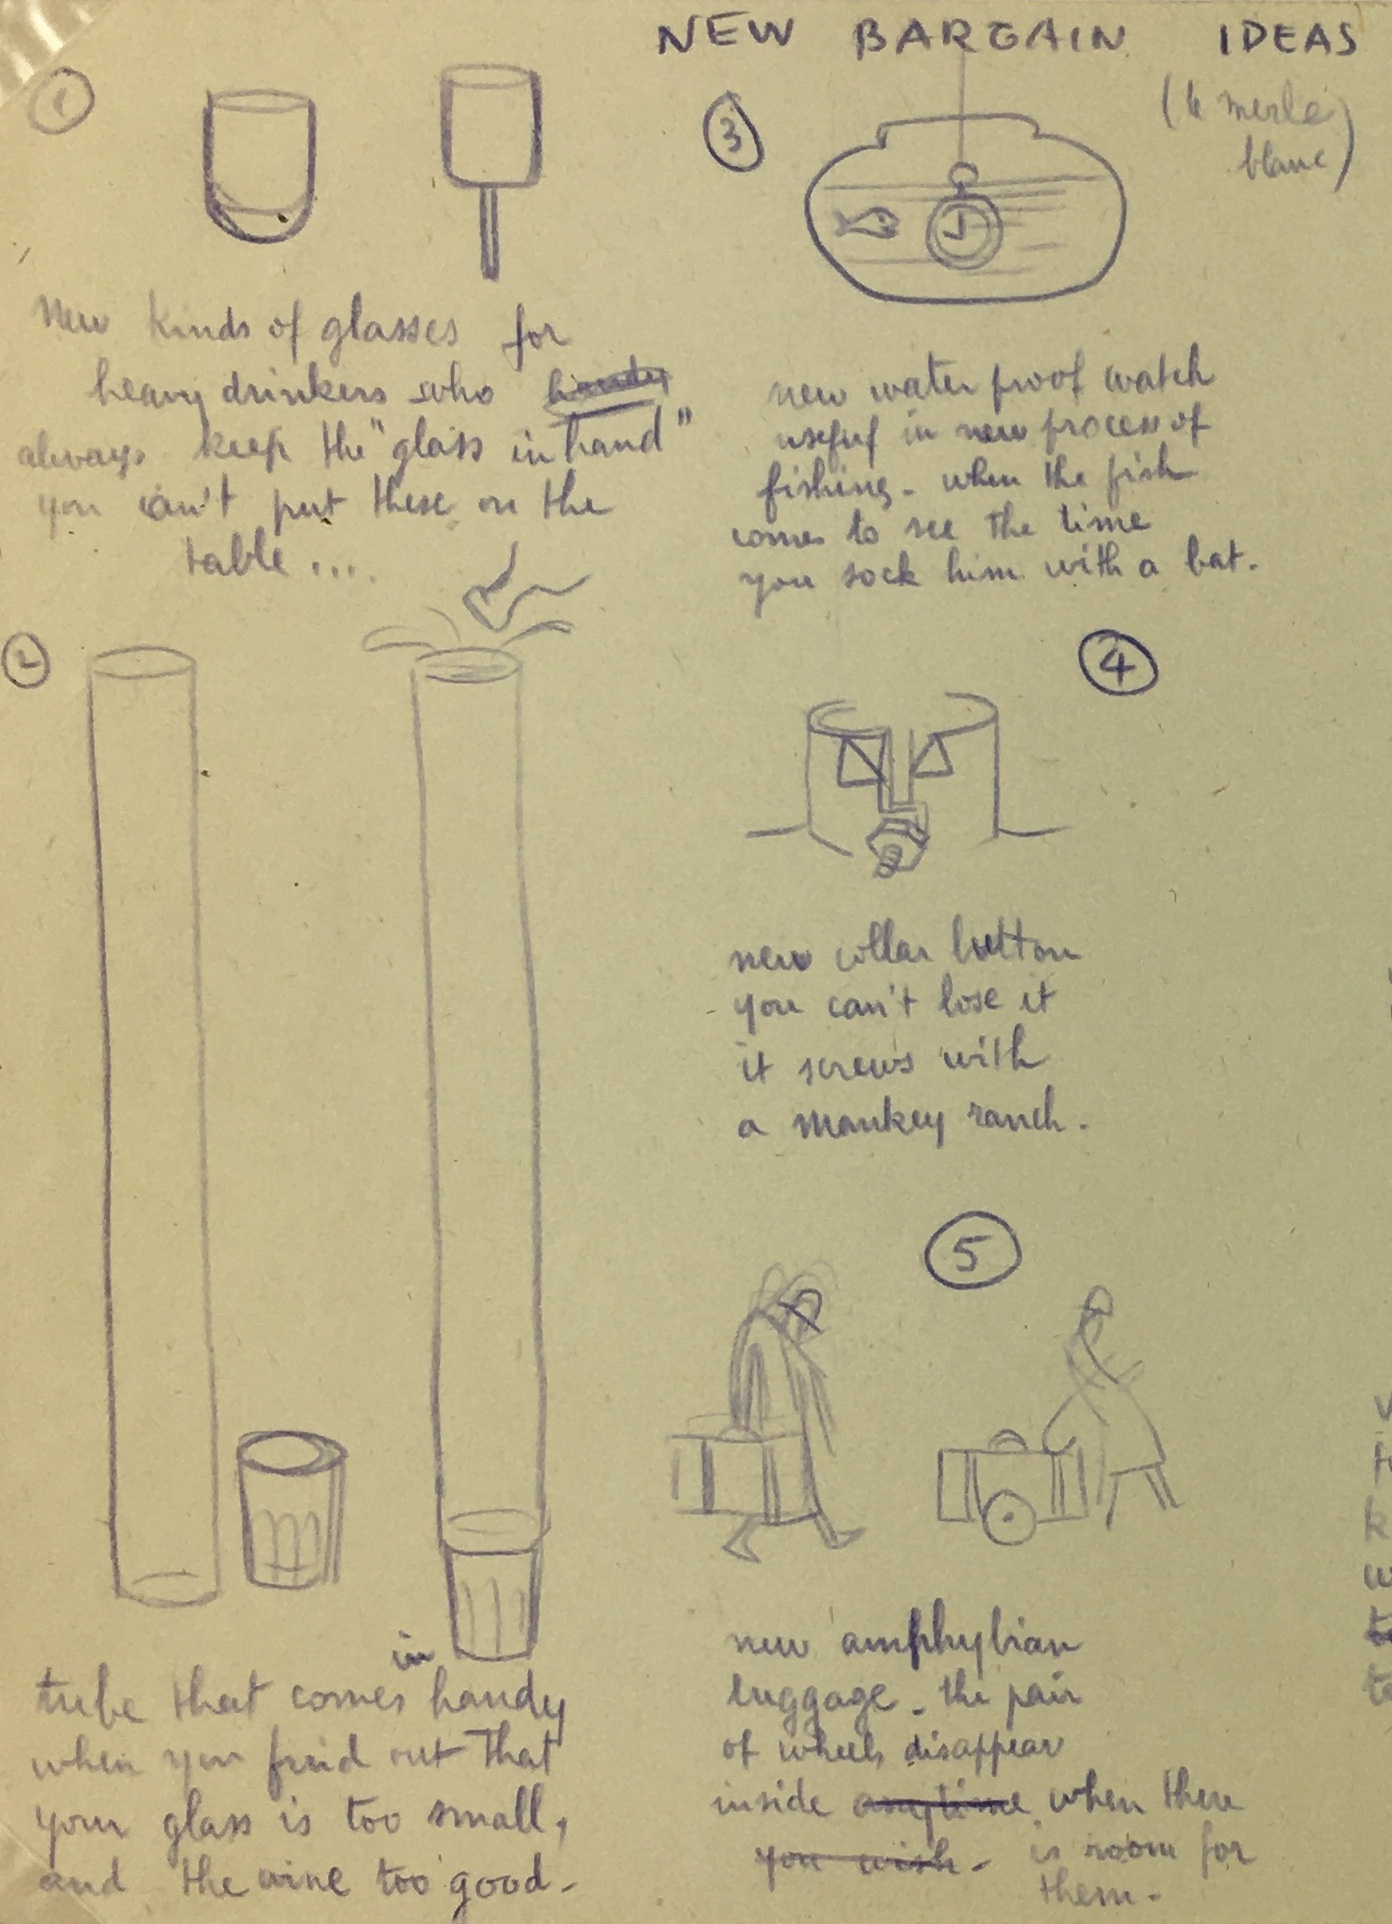 NEW BARGAIN IDEAS
(le merle
blanc)
1
new kinds of glasses for
heavy drinkers who
always keep the "glass in hand"
you can't put these on the
table ...
2
tube that comes in handy
when you find out that
your glass is too small,
and the wine too good -
3
new water proof watch
useful in new process of
fishing - when the fish
comes to see the time
you sock him with a bat.
4
new collar button
you can't lose it
it screws with
a monkey ranch.
5
new amphybian
luggage - the pair
of wheels disappear
inside anytime when there
you wish - is room for
them -